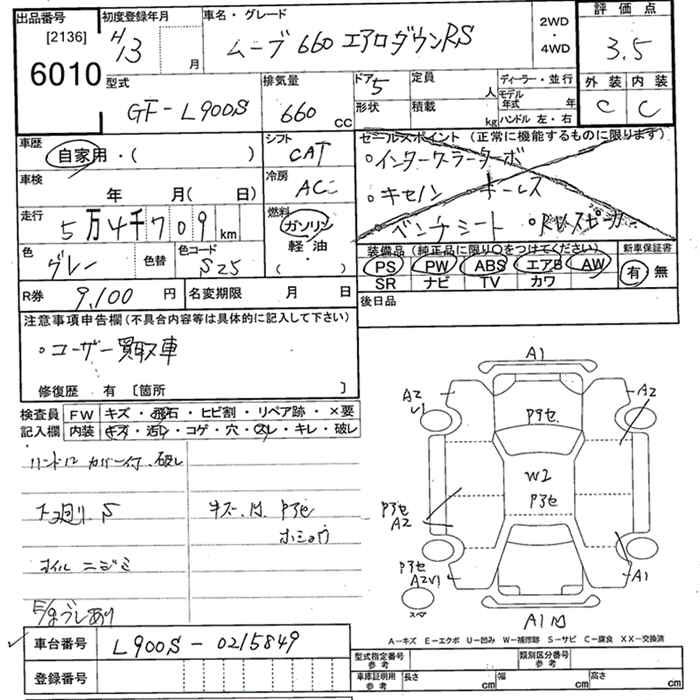 出品番号 初度登録年月 車名・グレード 2WD・4WD 評価点
[2136]
6010
H13 月 ムーブ 660 エアロダウンRS 3.5
型式 排気量 ドア 定員 ディーラー・並行
GF-L900S 660 cc 5 人 モデル年式 年
形状 積載 kg ハンドル 左・右
外装 内装
C C
車歴 自家用・( )
シフト CAT
セールスポイント (正常に機能するものに限ります)
・インタークーラーターボ
・キセノン
車検 年 月( 日)
冷房 AC
走行 5万4千709km
燃料 ガソリン 軽油 ( )
色 グレー 色替 色コード S25
装備品 (純正品に限り○をつけてください) 新車保証書
PS PW ABS エアB AW 有 無
SR ナビ TV カワ
R券 9,100円 名変期限 月 日
後日品
注意事項申告欄 (不具合内容等は具体的に記入して下さい)
・ユーザー買取車
修復歴 有 [箇所 ]
検査員 FW キズ・飛石・ヒビ割・リペア跡・×要
記入欄 内装 キズ・汚レ・コゲ・穴・スレ・キレ・破レ
オイル ニジミ
A1
A2
V1
A2
Pアセ
W2
Pアセ
Pアセ
A2
Pアセ
A2V1
A1
スペ
A1
A-キズ E-エクボ U-凹み W-補修跡 S-サビ C-腐食 XX-交換済
車台番号 L900S-0215849
登録番号
型式指定番号 参考 類別区分番号 参考
車庫証明用 参考 長さ cm 幅 cm 高さ cm